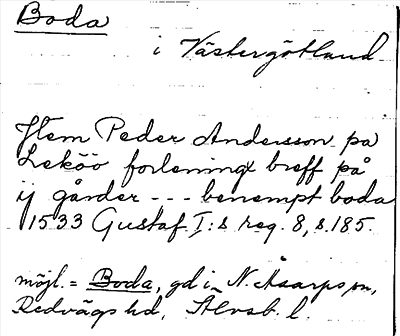 Boda
i Västergötland
Jtem Peder Andersson pa
Leköö forleningx breff på
ij gårder --- benempt boda
1533 Gustaf I:s reg. 8, s. 185.
möjl. = Boda, gd i N. Åsarps sn,
Redvägs hd, Älvsb. l.